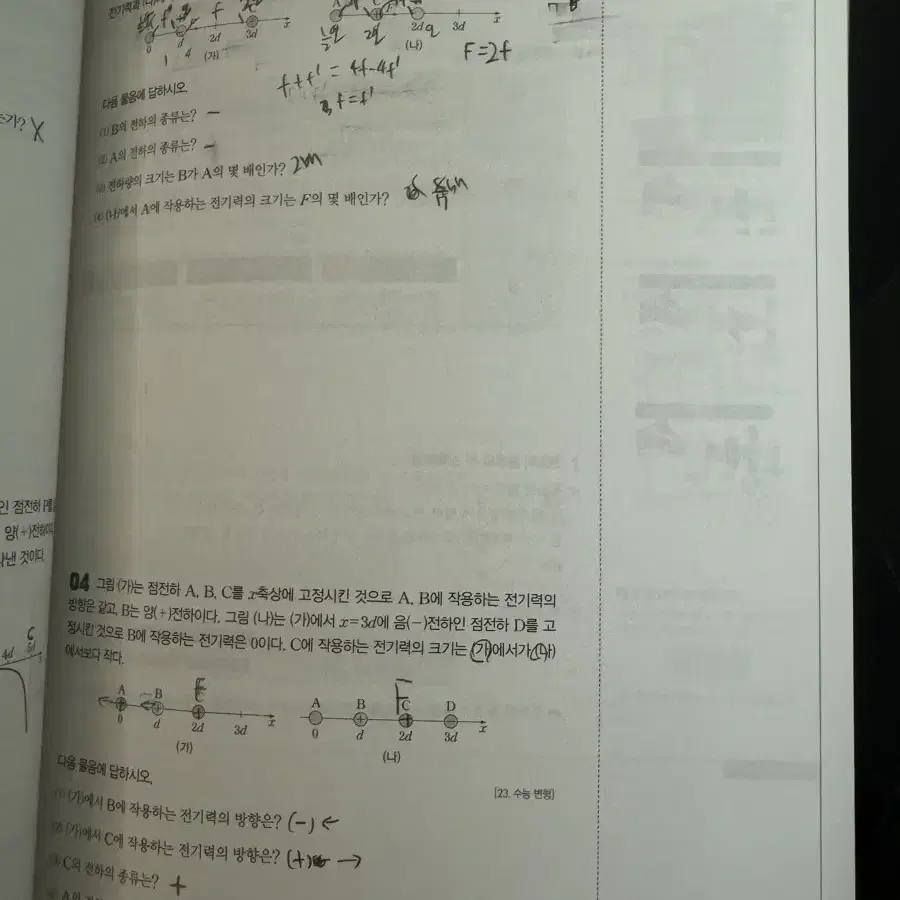 전기력
0 d 2d 3d x
(가)
2d 3d x
(나)
F=2f
f+f' = 4f-4f'
다음 물음에 답하시오.
(1) B의 전하의 종류는? -
(2) A의 전하의 종류는? -
(3) 전하량의 크기는 B가 A의 몇 배인가?
(4) (나)에서 A에 작용하는 전기력의 크기는 F의 몇 배인가?
가? X
인 점전하
양(+)전하이
낸 것이다.
4d
04 그림 (가)는 점전하 A, B, C를 x축상에 고정시킨 것으로 A, B에 작용하는 전기력의
방향은 같고, B는 양(+)전하이다. 그림 (나)는 (가)에서 x=3d에 음(-)전하인 점전하 D를 고
정시킨 것으로 B에 작용하는 전기력은 0이다. C에 작용하는 전기력의 크기는 (가)에서가 (나)
에서보다 작다.
F F
A B C A B C D
0 d 2d 3d x 0 d 2d 3d x
(가) (나)
[23. 수능 변형]
다음 물음에 답하시오.
(1) (가)에서 B에 작용하는 전기력의 방향은? (-) ←
(2) (가)에서 C에 작용하는 전기력의 방향은? (+) →
(3) C의 전하의 종류는? +